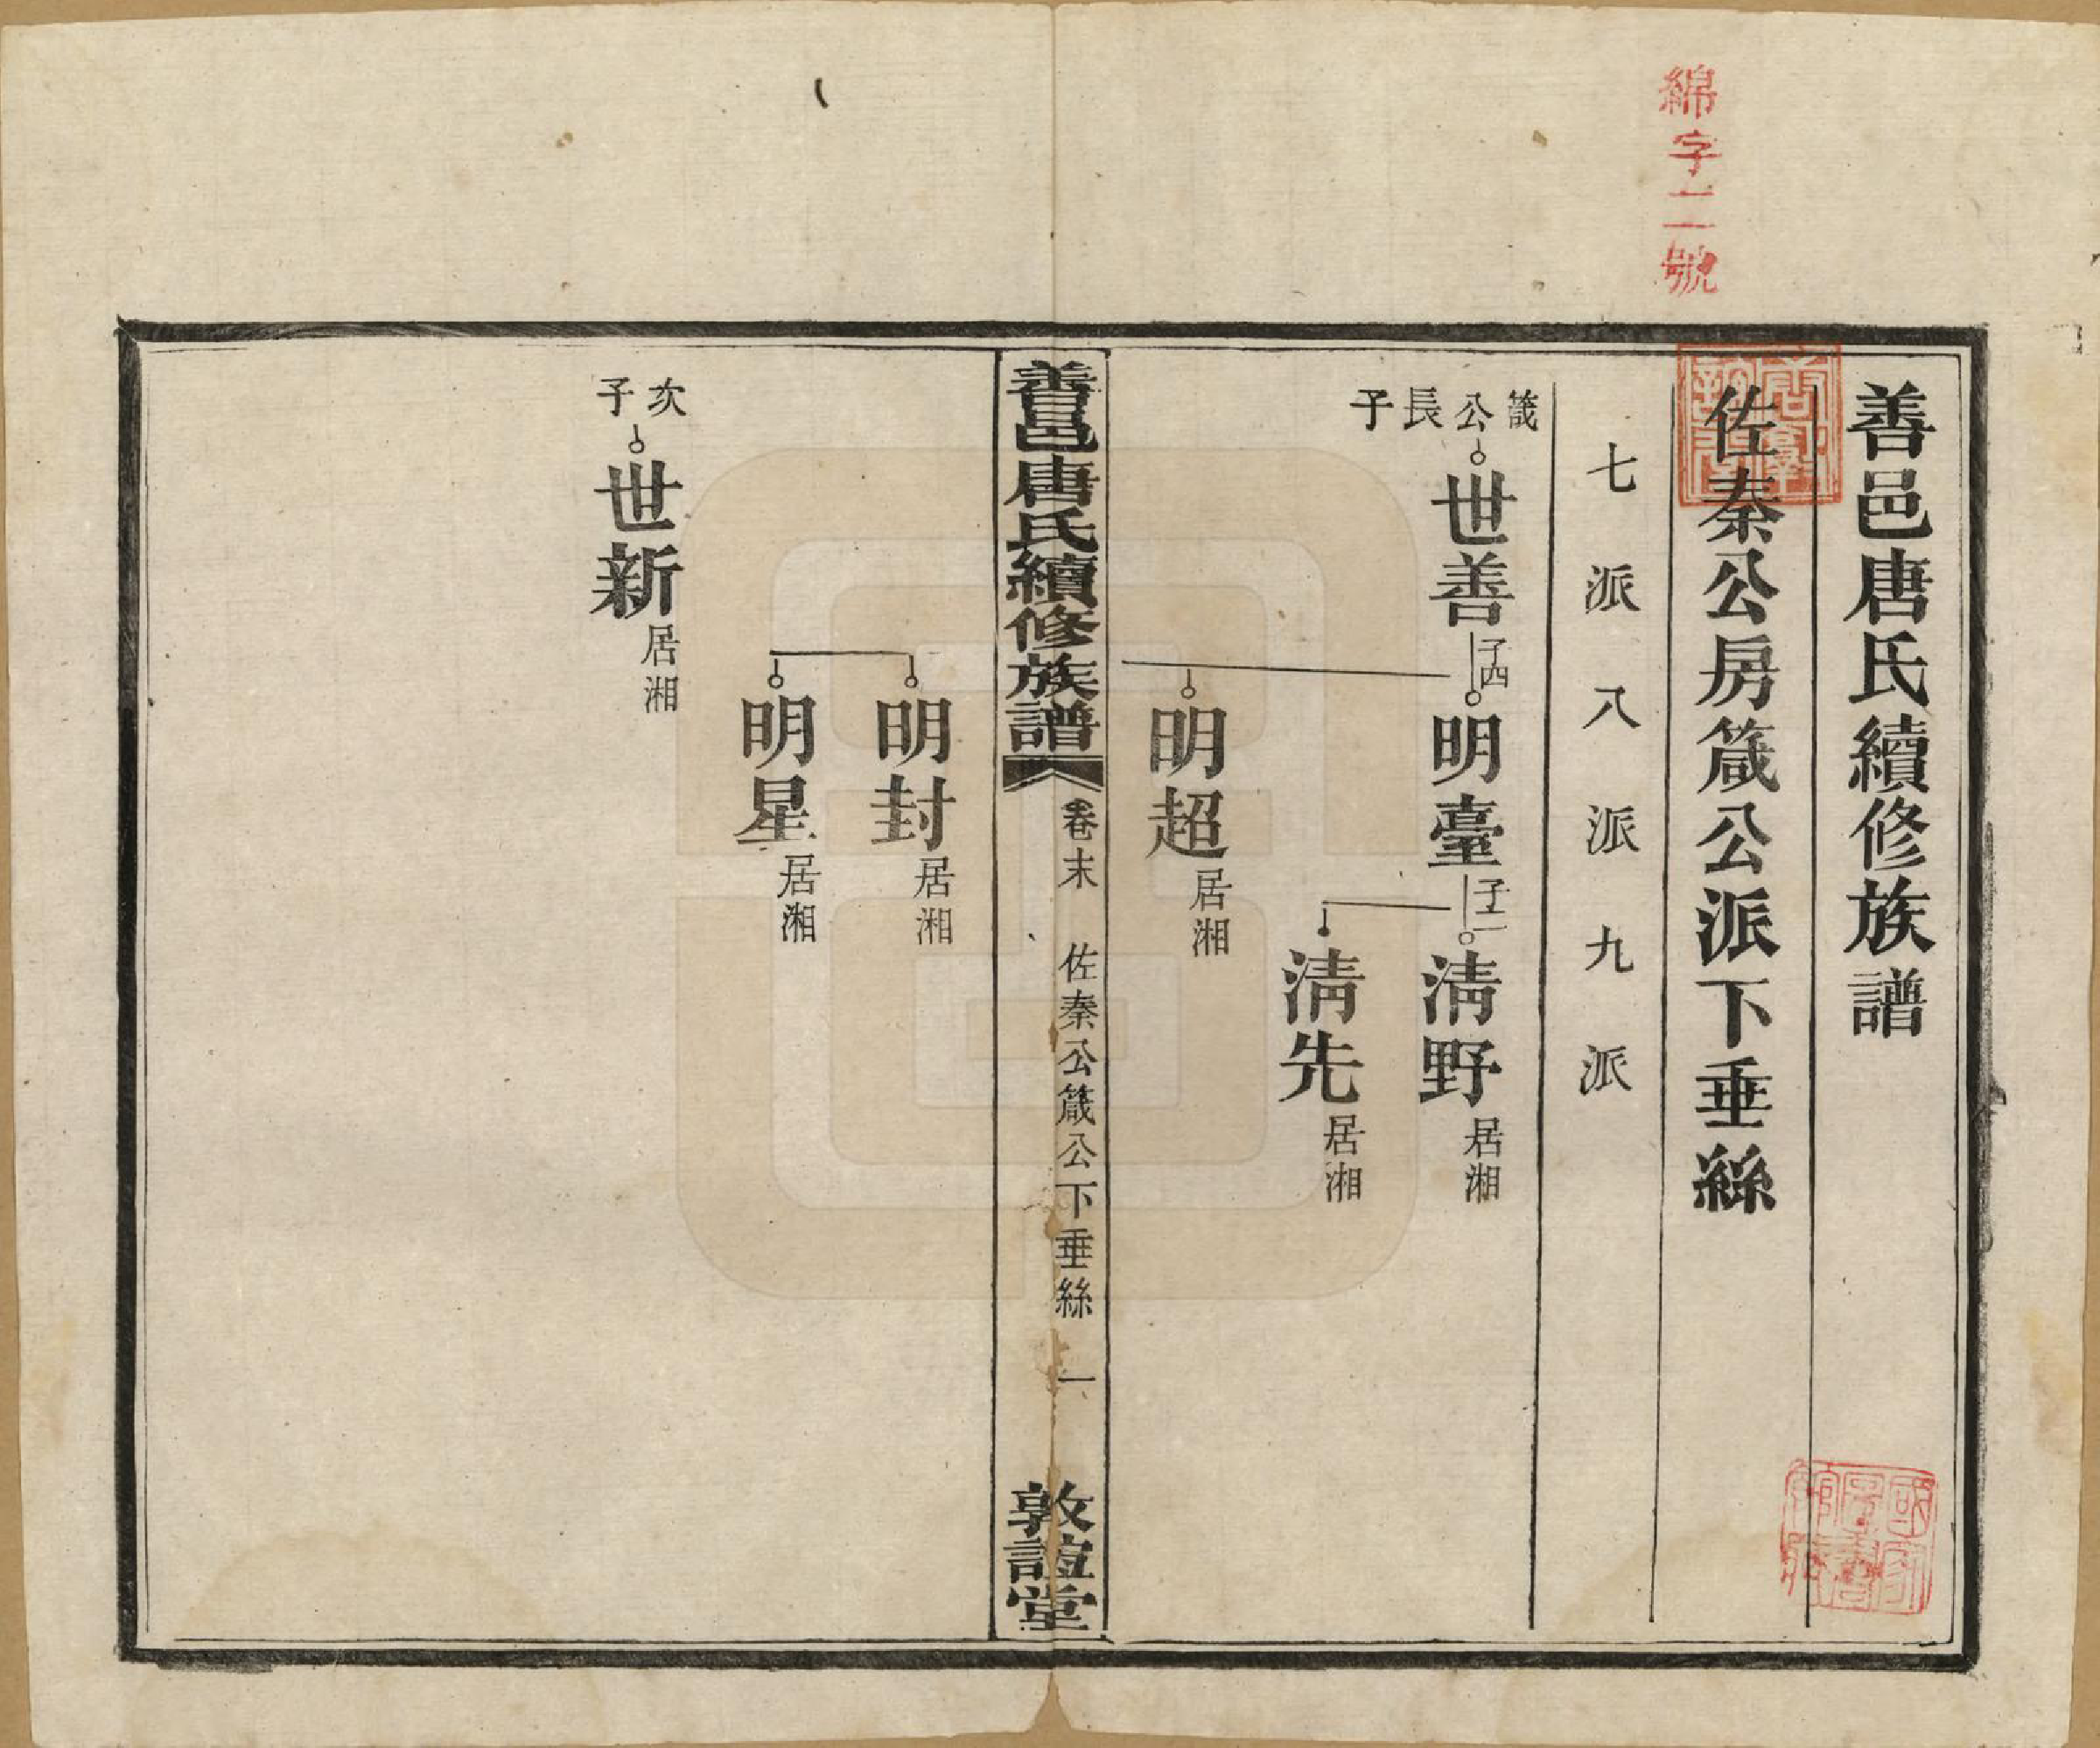 綿字二號
善邑唐氏續修族譜
佐秦公房箴公派下垂絲
七派八派九派
箴公長子
世善
子四
明臺
子二
淸野
居湘
淸先
居湘
明超
居湘
善邑唐氏續修族譜
卷末
佐秦公箴公下垂絲
一
敦誼堂
明封
居湘
明星
居湘
次子
世新
居湘